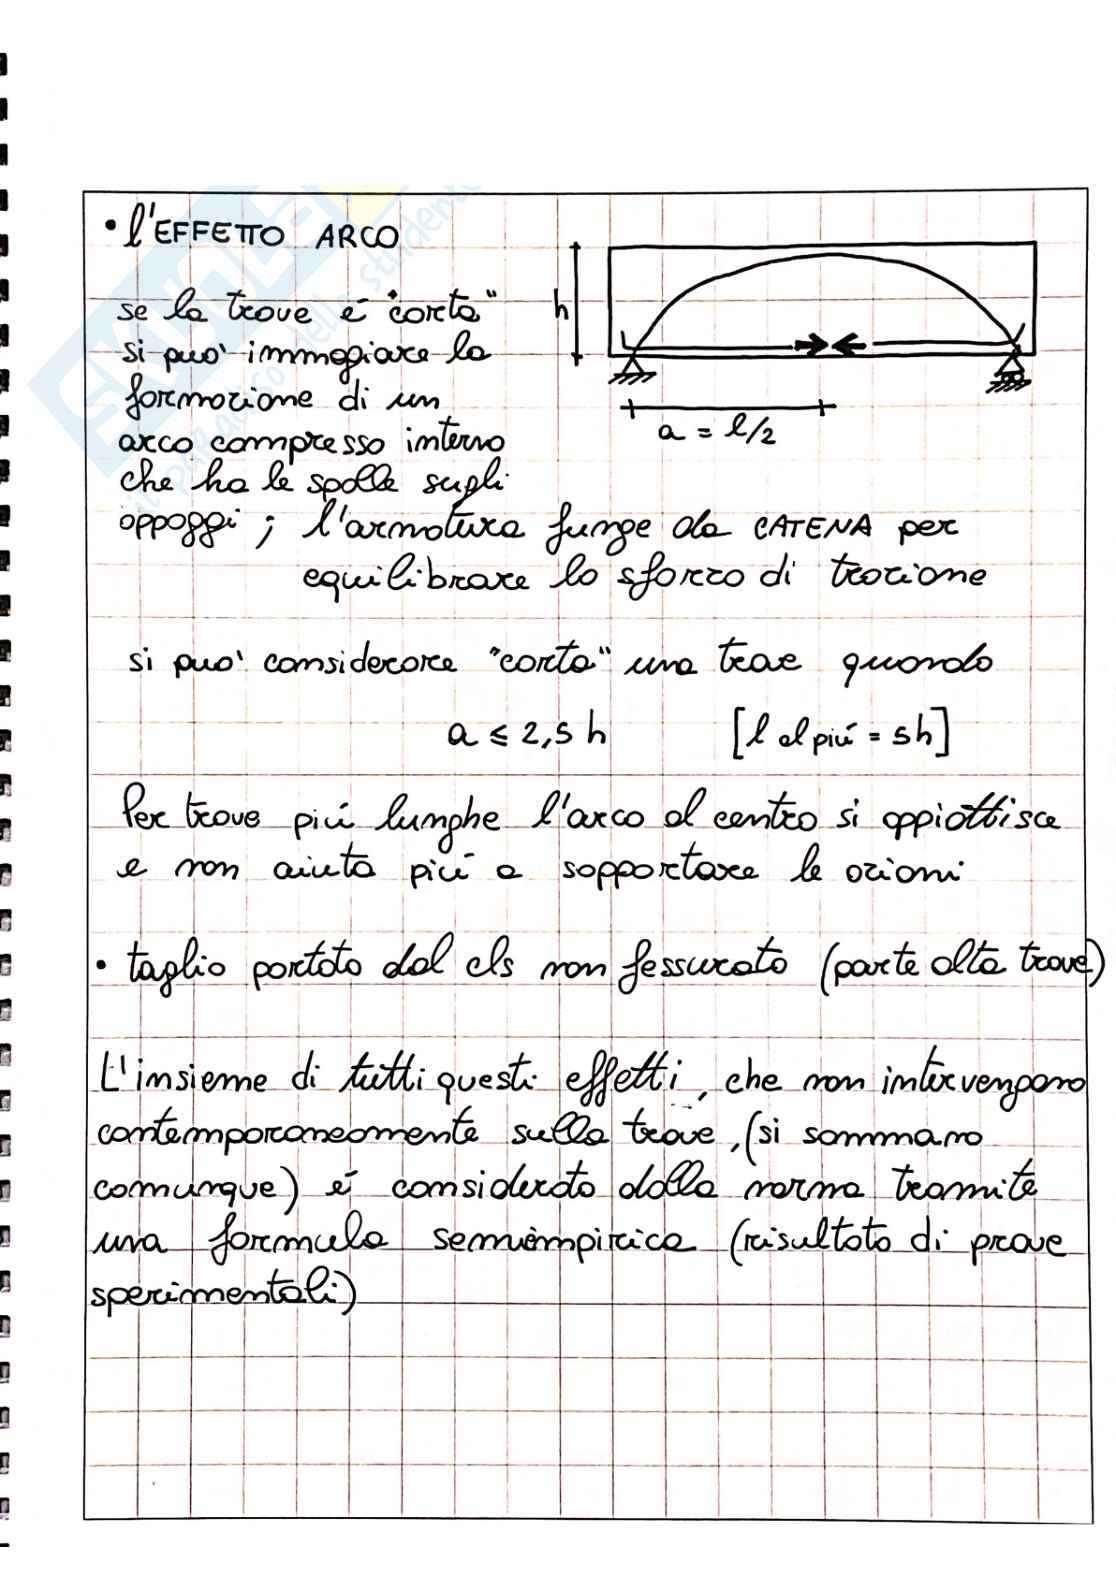 • l'EFFETTO ARCO
se la trave é "corta"
si puo' immagiare la
formazione di un
arco compresso interno
che ha le spalle sugli
appoggi ; l'armatura funge da CATENA per
equilibrare lo sforzo di trazione
h
a = l/2
si puo' considerare "corta" una trave quando
a ≤ 2,5 h [l al piú = 5h]
Per trave piú lunghe l'arco al centro si appiattisce
e non aiuta piú a sopportare le azioni
• taglio portato dal cls non fessurato (parte alta trave)
L'insieme di tutti questi effetti, che non intervengono
contemporaneamente sulla trave, (si sommano
comunque) é considerato dalla norma tramite
una formula semiempirica (risultato di prove
sperimentali)